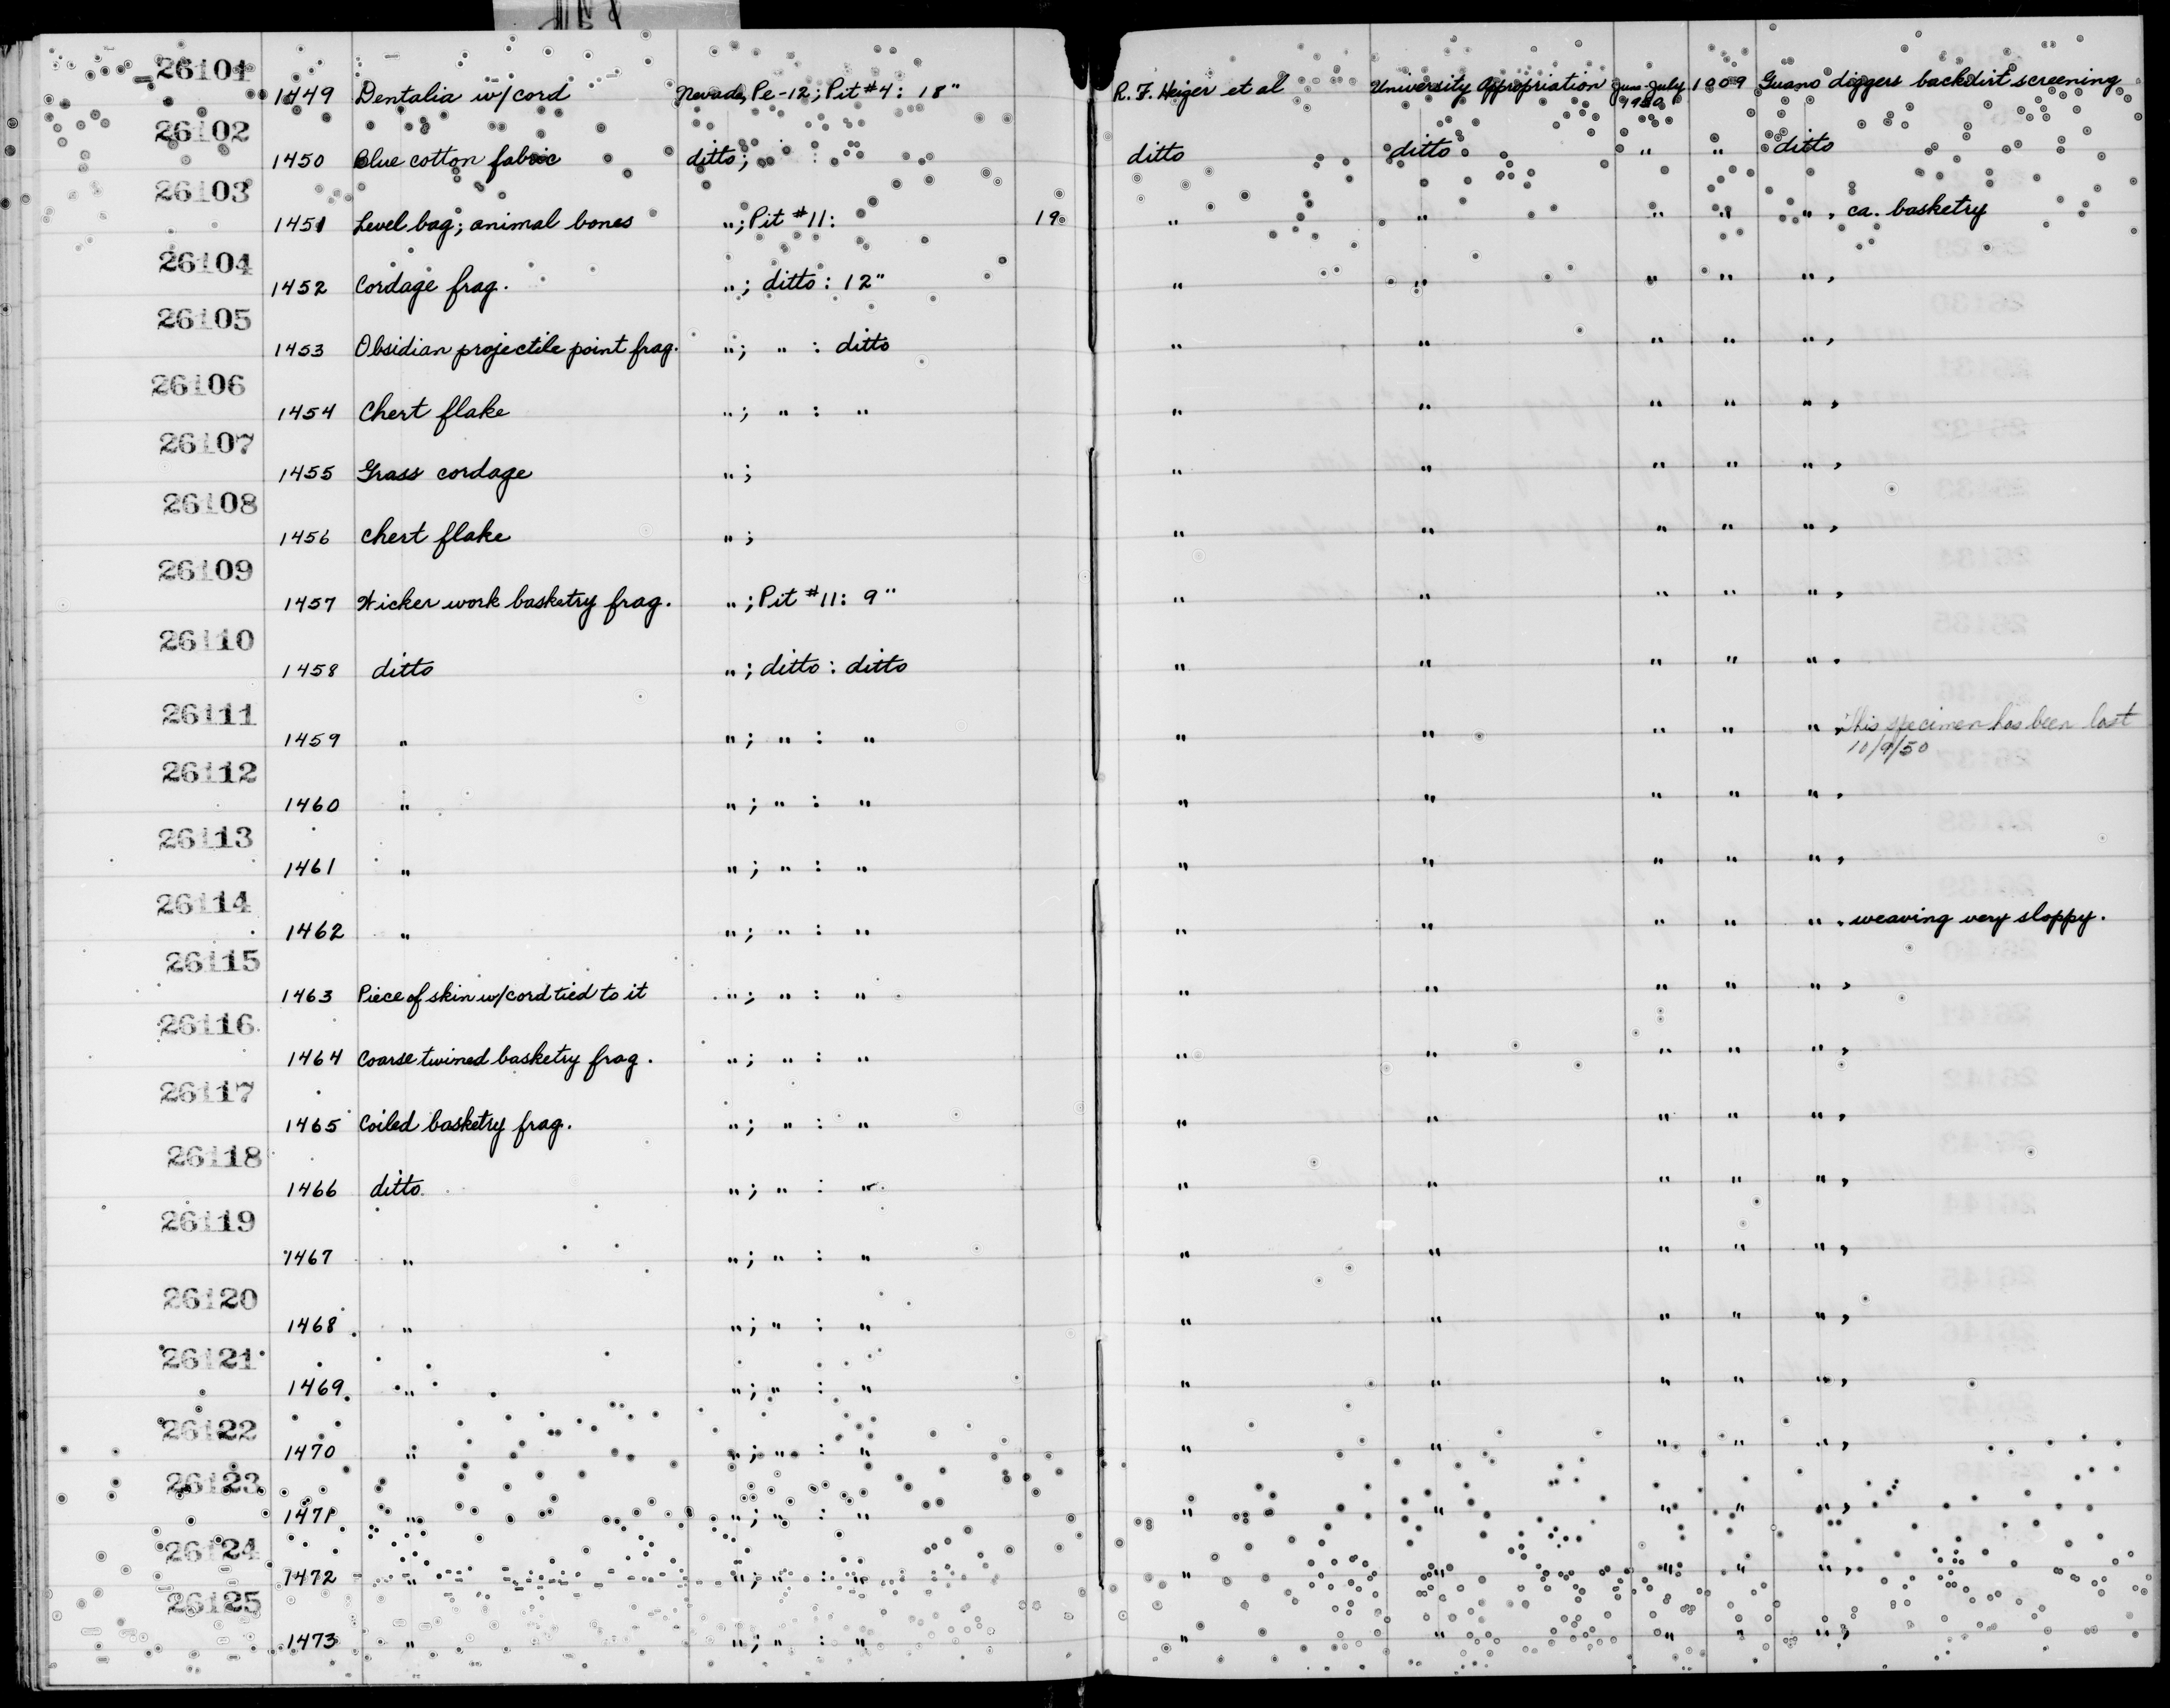 26101
1449 Dentalia w/cord Nevada, Pe-12; Pit #4: 18" R. F. Heizer et al University Appropriation June-July 1950 1009 Guano diggers backdirt screening
26102
1450 Blue cotton fabric ditto; : ditto ditto " " ditto
26103
1451 Level bag; animal bones "; Pit #11: 19 " " " " ", ca. basketry
26104
1452 Cordage frag. "; ditto: 12" " " " " ",
26105
1453 Obsidian projectile point frag. "; " : ditto " " " " ",
26106
1454 Chert flake "; " : " " " " " ",
26107
1455 Grass cordage "; " " " " ",
26108
1456 Chert flake "; " " " " ",
26109
1457 Wicker work basketry frag. "; Pit #11: 9" " " " " ",
26110
1458 ditto "; ditto: ditto " " " " ",
26111
1459 " "; " : " " " " " ", This specimen has been lost
10/9/50
26112
1460 " "; " : " " " " " ",
26113
1461 " "; " : " " " " " ",
26114
1462 " "; " : " " " " " ", weaving very sloppy.
26115
1463 Piece of skin w/cord tied to it "; " : " " " " " ",
26116
1464 Coarse twined basketry frag. "; " : " " " " " ",
26117
1465 Coiled basketry frag. "; " : " " " " " ",
26118
1466 ditto "; " : " " " " " ",
26119
1467 " "; " : " " " " " ",
26120
1468 " "; " : " " " " " ",
26121
1469 " "; " : " " " " " ",
26122
1470 " "; " : " " " " " ",
26123
1471 " "; " : " " " " " ",
26124
1472 " "; " : " " " " " ",
26125
1473 " "; " : " " " " " ",